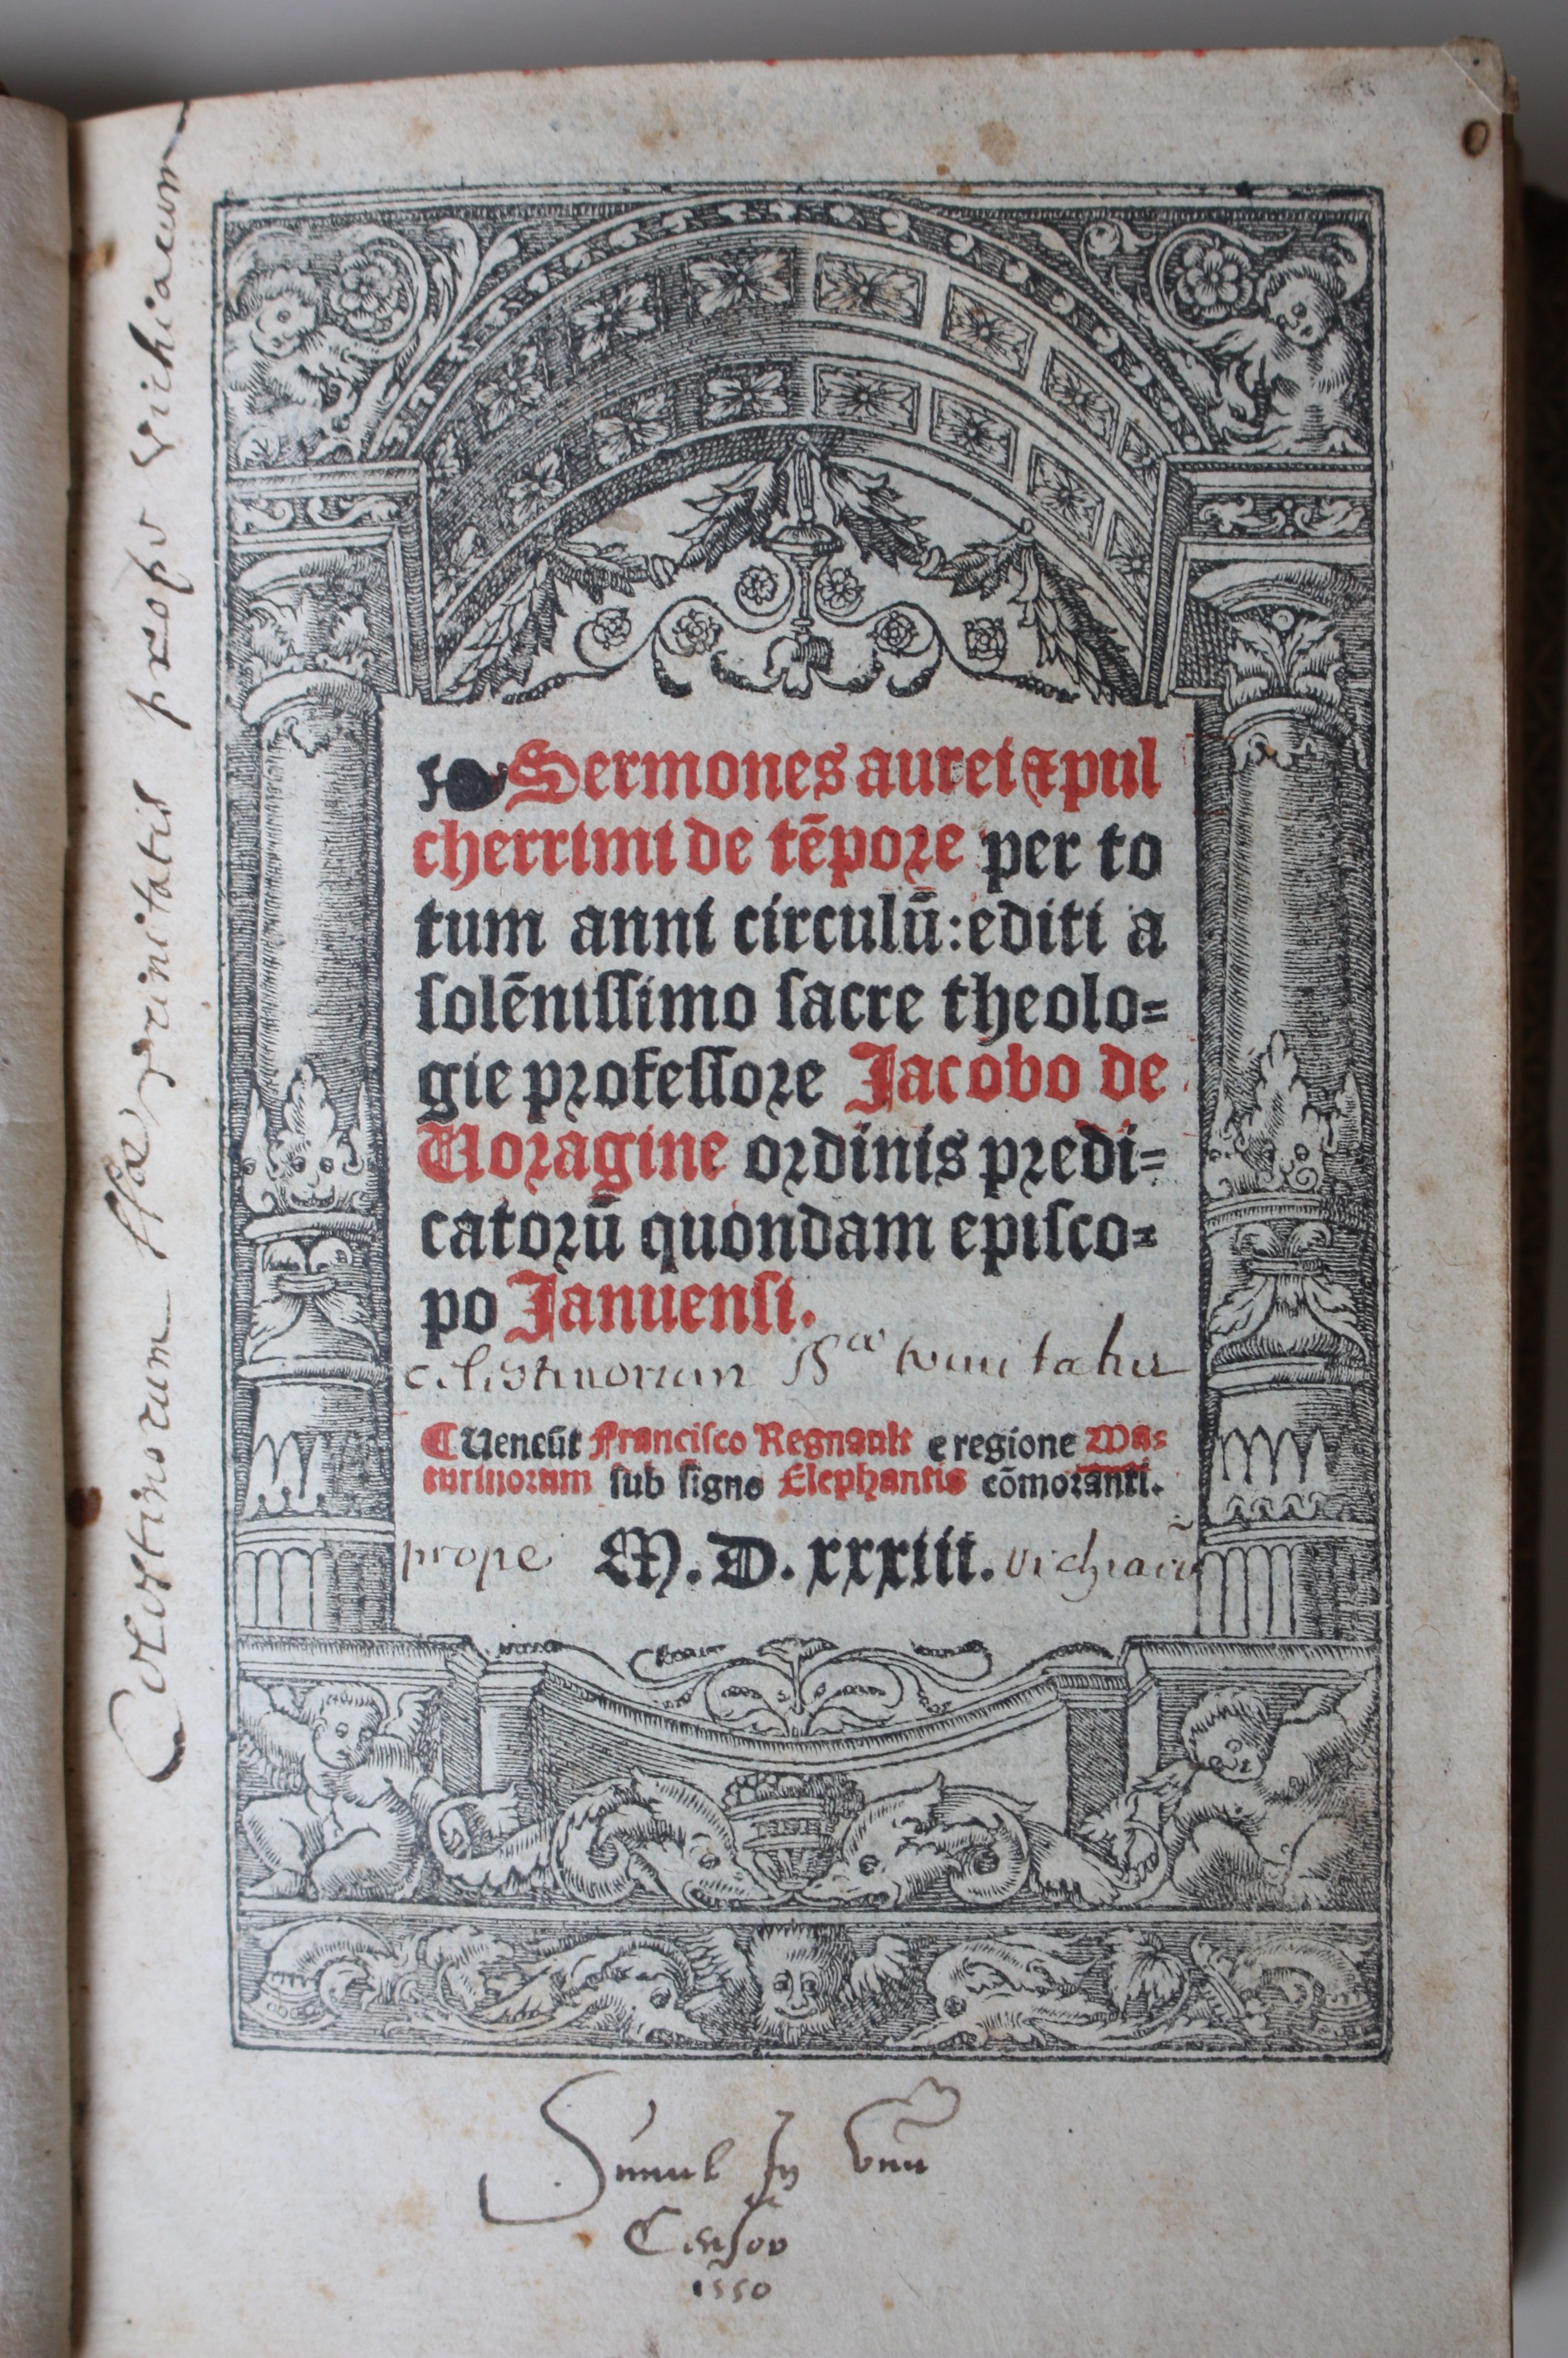 Sermones aurei ⁊ pul
cherrimi de tẽpore per to
tum anni circulũ: editi a
solẽnissimo sacre theolo=
gie professore Jacobo de
Uoragine ordinis predi=
catorũ quondam episco=
po Januensi.
celestinorum SSae trinitatis
¶ Ueneũt Francisco Regnault e regione Ma=
turinorum sub signo Elephantis cõmoranti.
prope M. D. xxxiii. vichiacũ
Celestinorum SSæ Trinitatis prope Vichiacum
Simul In vnũ
1550